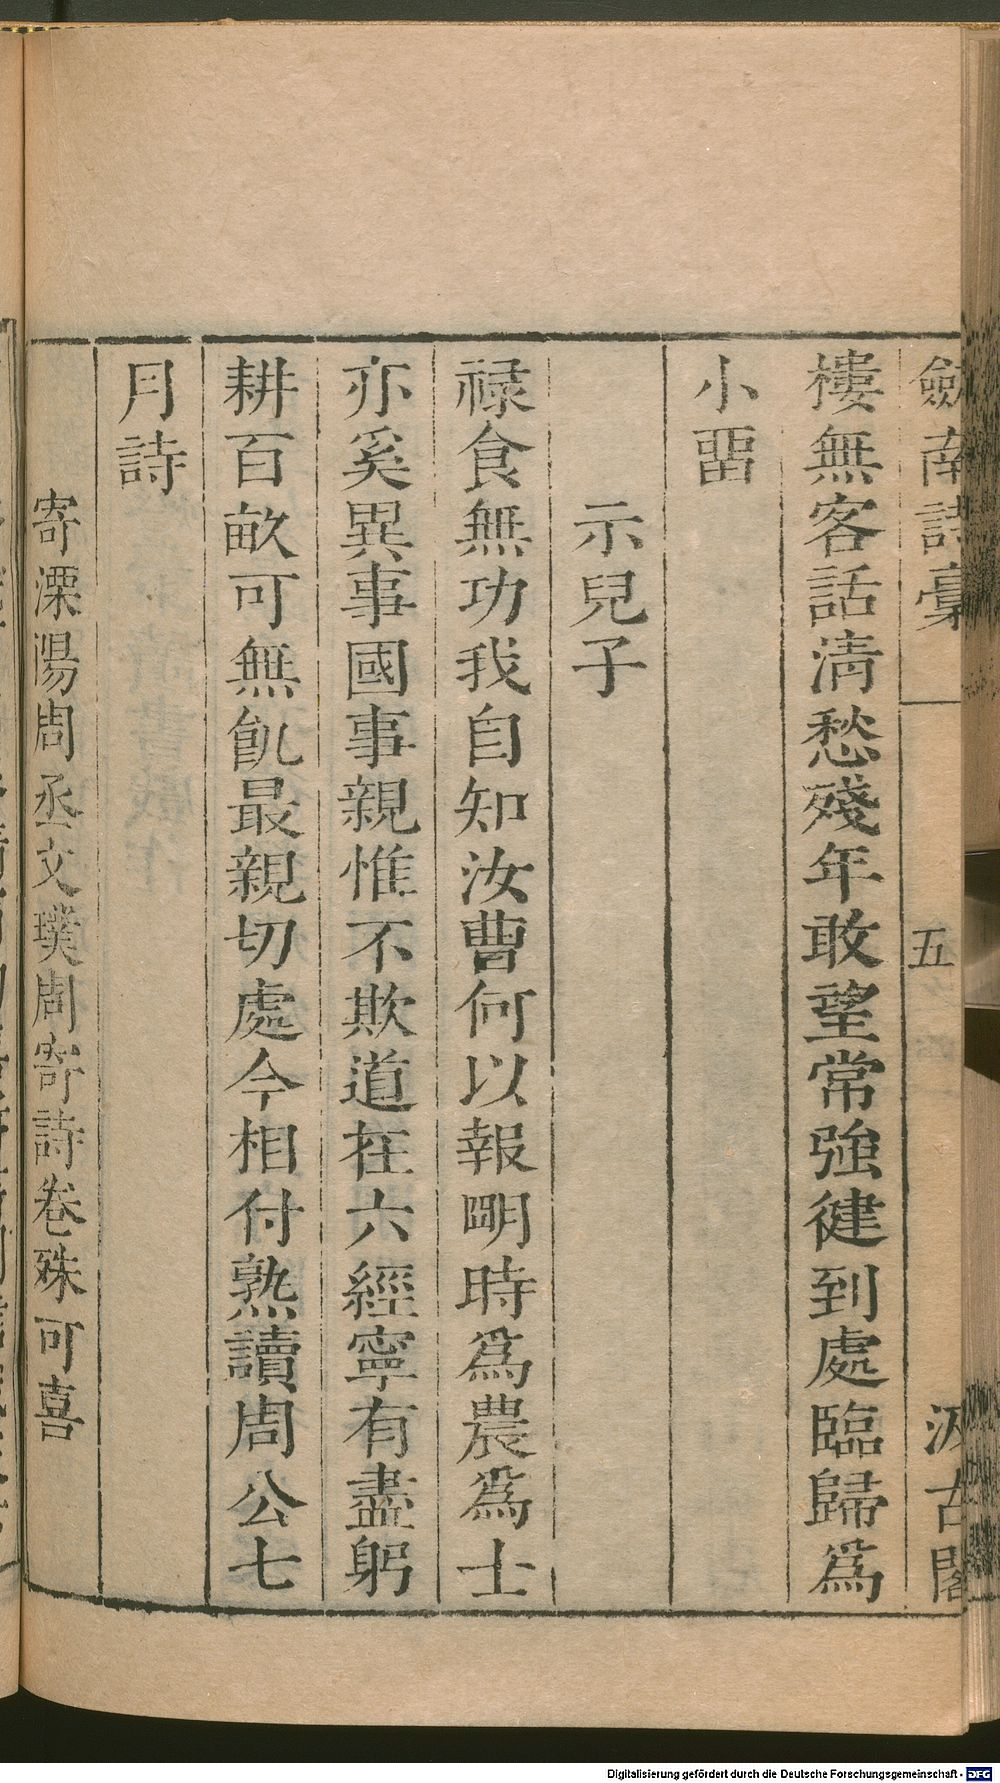 劔南詩稾 五 汲古閣
樓無客話淸愁殘年敢望常強健到處臨歸爲
小畱
示兒子
祿食無功我自知汝曹何以報明時爲農爲士
亦奚異事國事親惟不欺道在六經寧有盡躬
耕百畝可無飢最親切處今相付熟讀周公七
月詩
寄溧陽周丞文璞周寄詩卷殊可喜
Digitalisierung gefördert durch die Deutsche Forschungsgemeinschaft - DFG